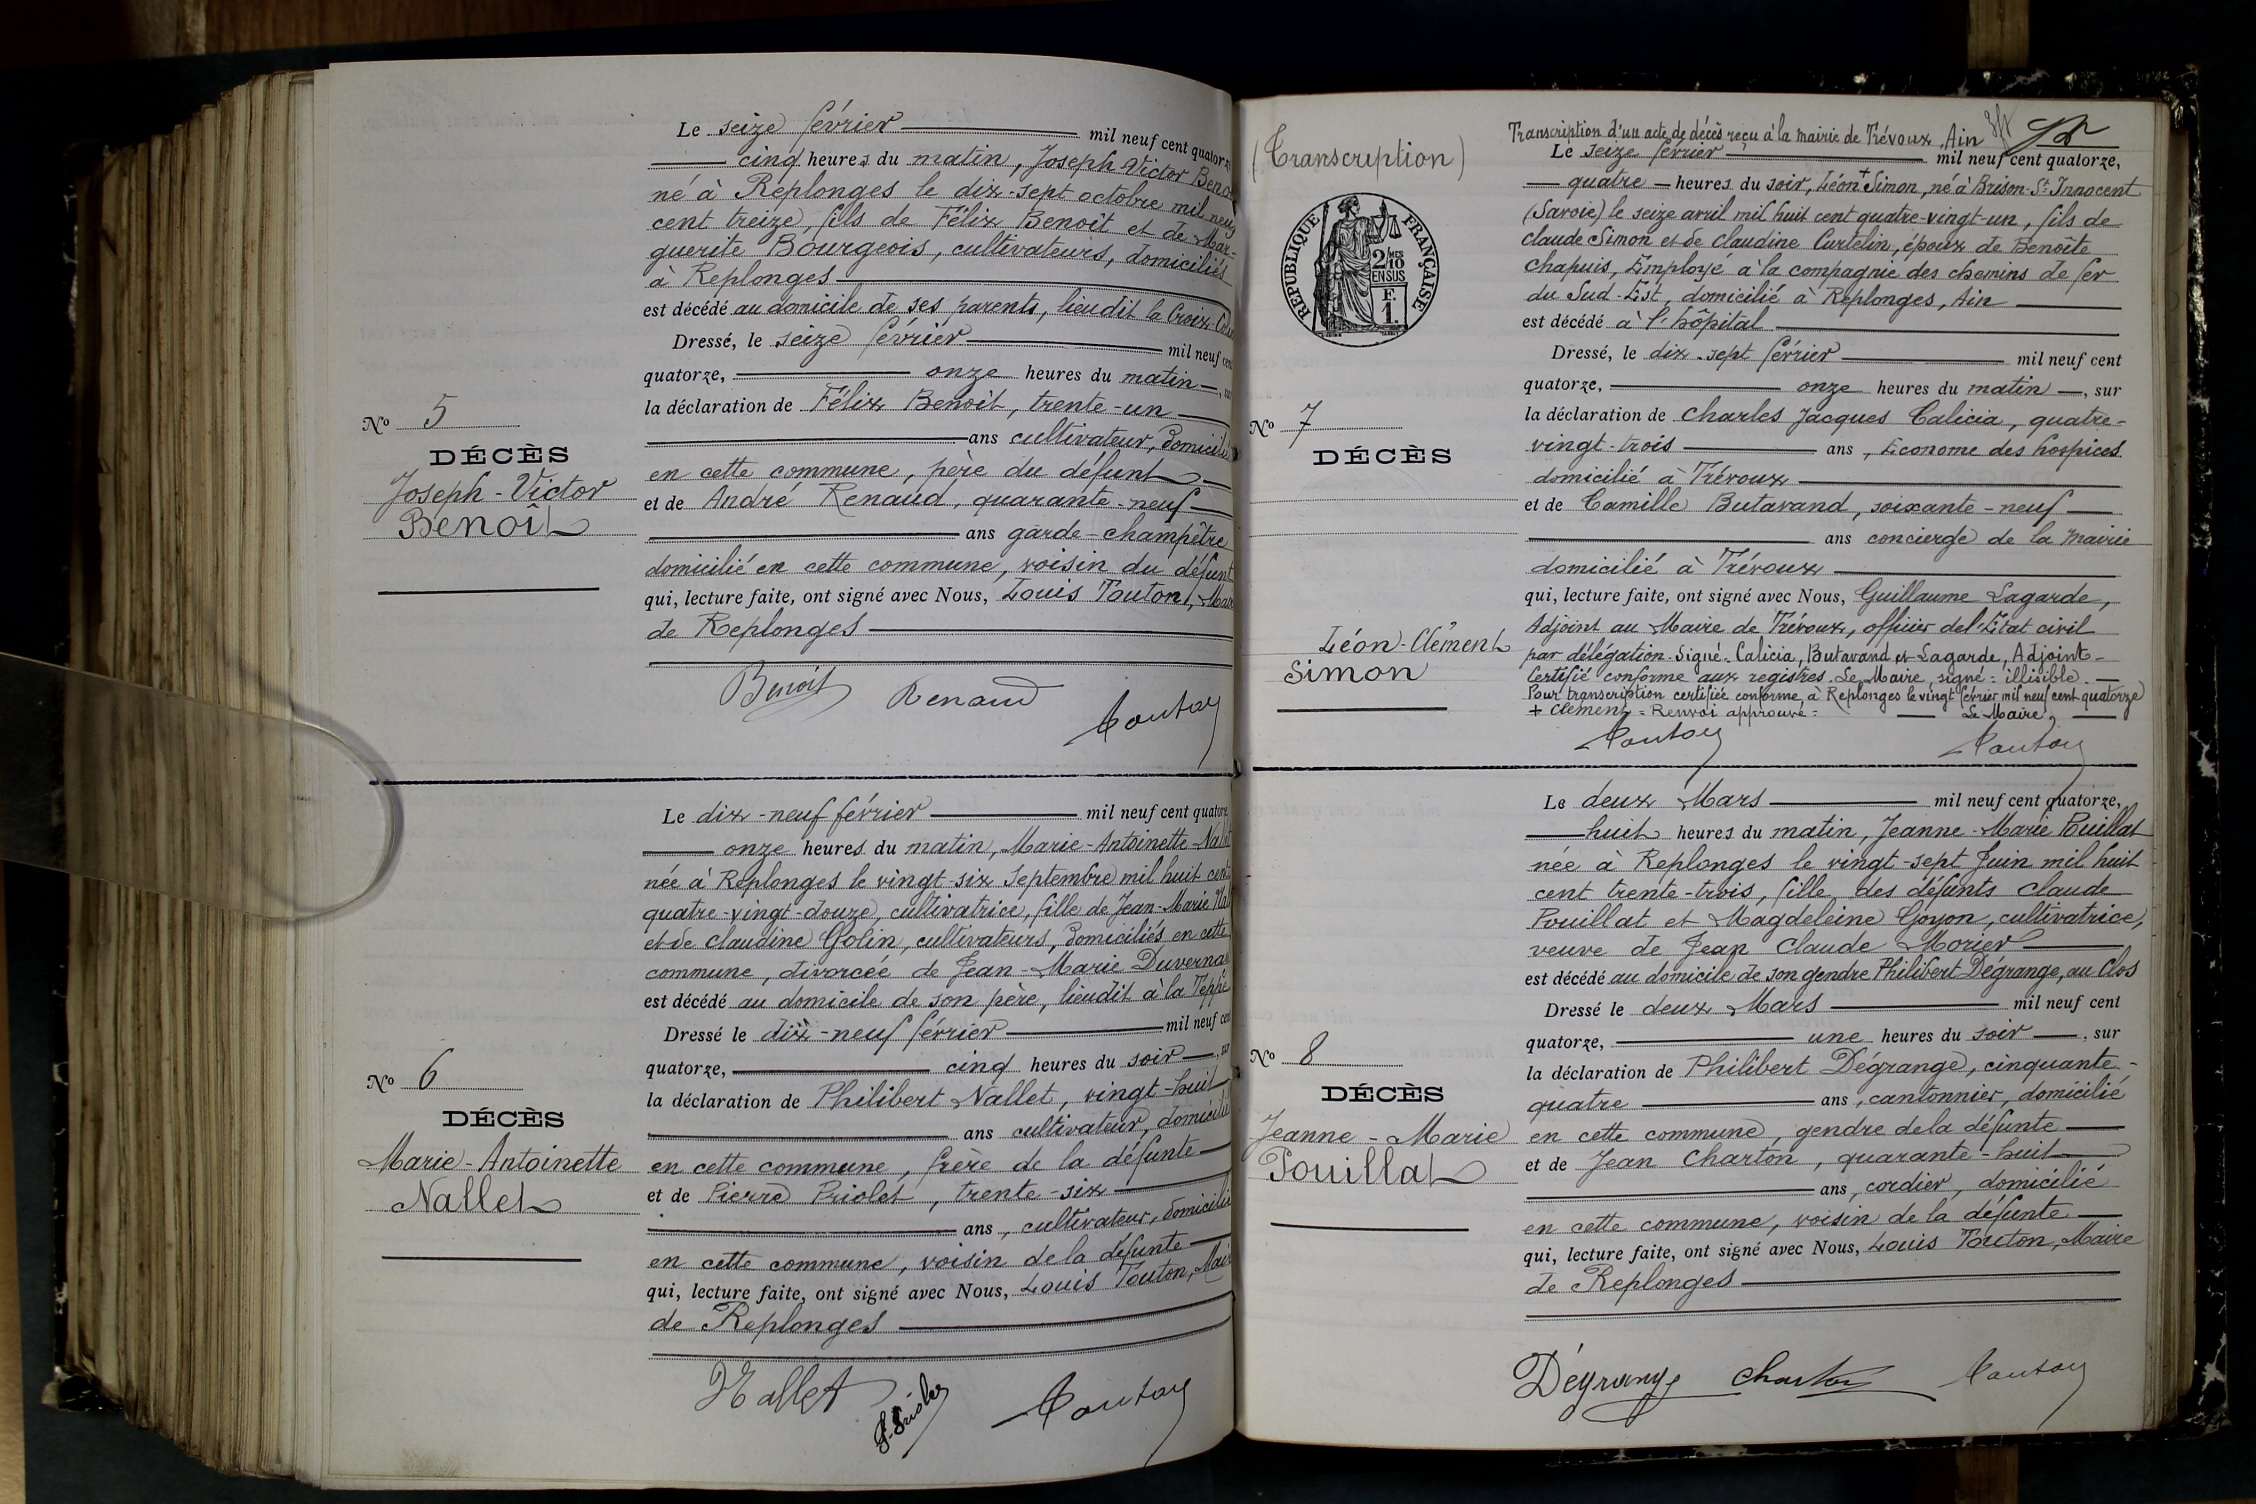 Le seize février mil neuf cent quatorze
cinq heures du matin, Joseph Victor Benoit
né à Replonges le dix-sept octobre mil neuf
cent treize, fils de Félix Benoit et de Mar-
guerite Bourgeois, cultivateurs, domiciliés
à Replonges
est décédé au domicile de ses parents, lieudit la Croix
Dressé, le seize février mil neuf cent
quatorze, onze heures du matin, sur
la déclaration de Félix Benoit, trente-un
ans cultivateur, domicilié
en cette commune, père du défunt
et de André Renaud, quarante-neuf
ans garde-champêtre
domicilié en cette commune, voisin du défunt
qui, lecture faite, ont signé avec Nous, Louis Touton, Maire
de Replonges
Benoit Renaud Touton
No 5
DÉCÈS
Joseph-Victor
Benoît
Le dix-neuf février mil neuf cent quatorze
onze heures du matin, Marie-Antoinette Nallet
née à Replonges le vingt-six Septembre mil huit cent
quatre-vingt-douze, cultivatrice, fille de Jean-Marie Nallet
et de Claudine Golin, cultivateurs, domiciliés en cette
commune, divorcée de Jean-Marie
est décédé au domicile de son père, lieudit à la Teppe
Dressé le dix-neuf février mil neuf cent
quatorze, cinq heures du soir, sur
la déclaration de Philibert Nallet, vingt-huit
ans cultivateur, domicilié
en cette commune, frère de la défunte
et de Pierre Priolet, trente-six
ans, cultivateur, domicilié
en cette commune, voisin de la défunte
qui, lecture faite, ont signé avec Nous, Louis Touton, Maire
de Replonges
Nallet P. Priolet Touton
No 6
DÉCÈS
Marie-Antoinette
Nallet
(Transcription)
RÉPUBLIQUE FRANÇAISE
2/10 MES
EN SUS
F.
1.
Transcription d'un acte de décès reçu à la mairie de Trévoux, Ain
Le seize février mil neuf cent quatorze,
quatre heures du soir, Léon + Simon, né à Brison-St-Innocent
(Savoie) le seize avril mil huit cent quatre-vingt-un, fils de
Claude Simon et de Claudine Curtelin, époux de Benoîte
Chapuis, Employé à la compagnie des chemins de fer
du Sud-Est, domicilié à Replonges, Ain
est décédé à l'hôpital
Dressé, le dix-sept février mil neuf cent
quatorze, onze heures du matin, sur
la déclaration de Charles Jacques Calicia, quatre-
vingt-trois ans, Econome des hospices
domicilié à Trévoux
et de Camille Butavand, soixante-neuf
ans concierge de la Mairie
domicilié à Trévoux
qui, lecture faite, ont signé avec Nous, Guillaume Lagarde,
Adjoint au Maire de Trévoux, officier de l'Etat civil
par délégation. Signé: Calicia, Butavand et Lagarde, Adjoint-
Certifié conforme aux registres. Le Maire, signé: illisible.
Pour transcription certifiée conforme, à Replonges le vingt février mil neuf cent quatorze
+ Clément = Renvoi approuvé = Le Maire,
Touton Touton
No 7
DÉCÈS
Léon-Clément
Simon
Le deux Mars mil neuf cent quatorze,
huit heures du matin, Jeanne-Marie Pouillat
née à Replonges le vingt-sept Juin mil huit
cent trente-trois, fille des défunts Claude
Pouillat et Magdeleine Goyon, cultivatrice,
veuve de Jean Claude Morier
est décédé au domicile de son gendre Philibert Dégrange, au Clos
Dressé le deux Mars mil neuf cent
quatorze, une heures du soir, sur
la déclaration de Philibert Dégrange, cinquante-
quatre ans, cantonnier, domicilié
en cette commune, gendre de la défunte
et de Jean Charton, quarante-huit
ans, cordier, domicilié
en cette commune, voisin de la défunte
qui, lecture faite, ont signé avec Nous, Louis Touton, Maire
de Replonges
Dégrange Charton Touton
No 8
DÉCÈS
Jeanne-Marie
Pouillat